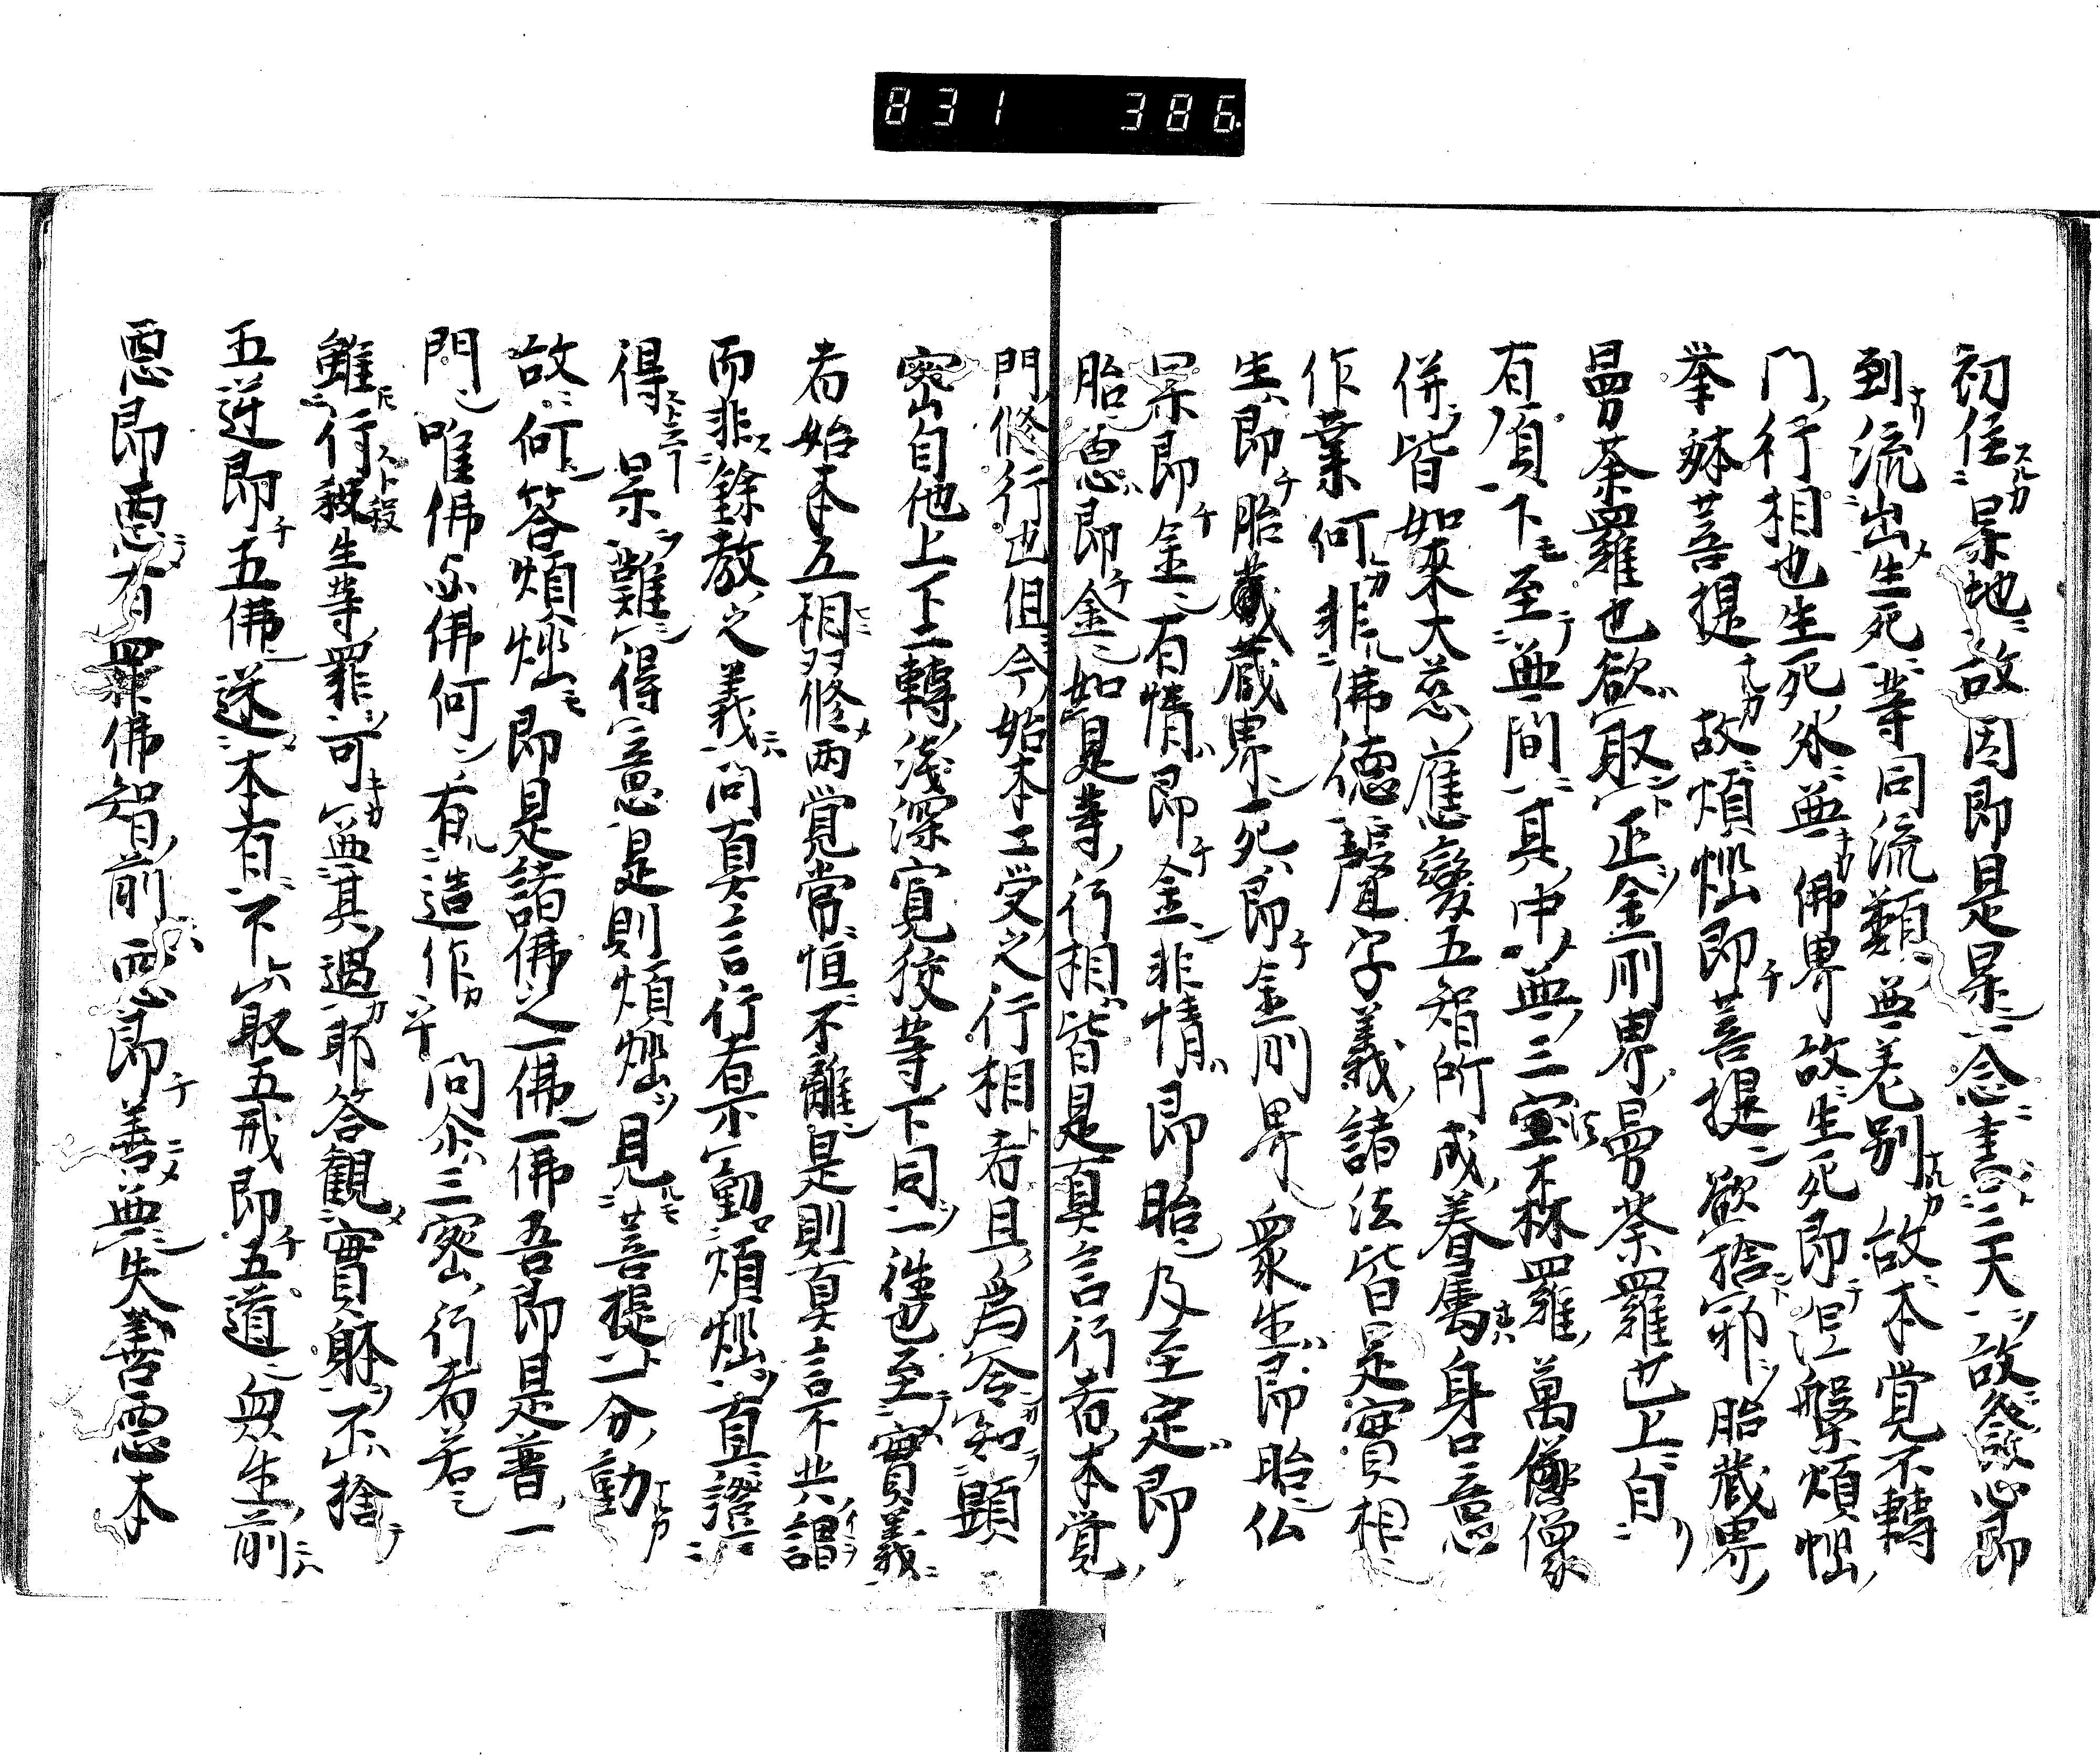 831 386
初住果地故因即是果一念三天故発心即
到流出生死等同流類無差別故本覚不轉
門行相也生死外無佛界故生死即涅槃煩惱
挙躰菩提故煩惱即菩提欲捨邪胎蔵界
曼荼羅也欲取正金剛界曼荼羅也上自
有頂下至無間其中無三宝森羅萬像
併皆如來大慈應變五智所成眷属身口意
作業何非佛德聲字義諸法皆是實相
生即胎蔵界死即金剛界衆生即胎仏
果即金有情即金非情即胎及至定即
胎恵即金如是等行相皆是真言行者本覚
門修行也但今始本互受之行相者且為令知顕
密自他上下二轉浅深寛狭等下同一往也至實義
者始本互相双修両覚常恒不離是則真言不共謂
而非餘教之義問真言行者不動煩惱直證
得果難得意是則煩惱見菩提一分動
故何答煩惱即是諸佛之一佛一佛吾即是普一
門唯佛與佛何有造作問尒三密行者若
雖行殺生等罪可無其過耶答観實躰不捨
五逆即五佛迷本有不取五戒即五道衆生前
悪即悪有罪佛智前悪即善無失善悪本